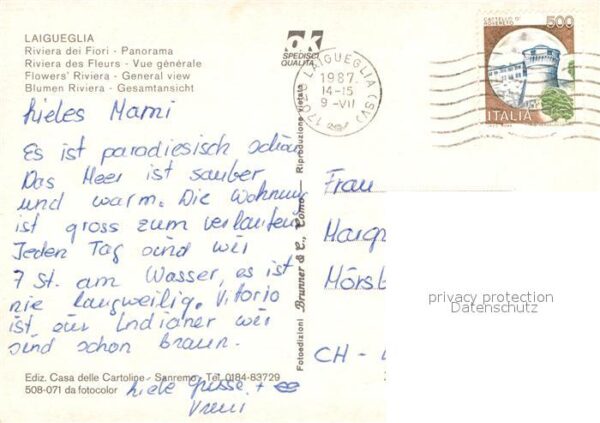 LAIGUEGLIA
Riviera dei Fiori - Panorama
Riviera des Fleurs - Vue générale
Flowers' Riviera - General view
Blumen Riviera - Gesamtansicht
liebes Mami
Es ist paradiesisch schön
Das Meer ist sauber
und warm. Die Wohnung
ist gross zum verlaufen
Jeden Tag sind wir
7 St. am Wasser, es ist
nie langweilig. Vitorio
ist ein Indianer wir
sind schon braun.
liebe Grüsse +
Vreni
Ediz. Casa delle Cartoline - Sanremo - Tel. 0184-83729
508-071 da fotocolor
ok
SPEDISCI
QUALITÀ
Fotoedizioni Brunner & C., Como - Riproduzione vietata
17020 LAIGUEGLIA (SV)
1987
14-15
9-VII
CASTELLO DI
ROVERETO
500
ITALIA
Frau
Marg
Mörsb
CH -
privacy protection
Datenschutz